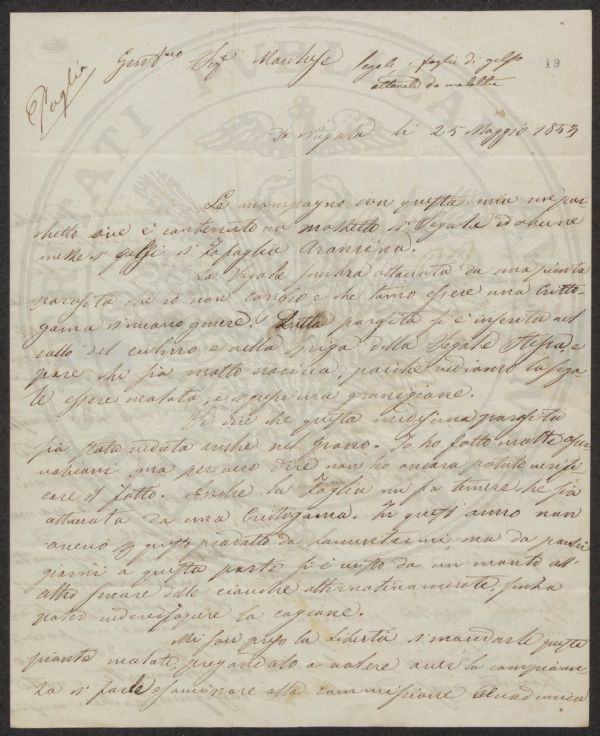 19
Puglia
Gent.mo Sig.e Marchese
Segale e foglie di gelso
attaccate da malattia
Da li 25 Maggio 1853
Le accompagno con questa mia un pac
chetto ove è contenuto un mazzetto di Segale ed alcune
di gelsi di
La Segale sembra attaccata da una pianta
parasita che io non conosco e che temo essere una critto-
gama di nuovo genere. parasita si è inserita nel
collo del culmo e nella spiga della Segale stessa, e
pare che sia molto nociva, poiche vediamo la sega
le essere malata, e granigione.
Si dice che questa medesima parasita
sia stata veduta anche nel grano. Io ho fatto molte os
servazioni ma per vero dire non ho ancora potuto verifi
care il fatto. Anche la foglia mi fa temere che sia
attaccata da una Crittogama. In quest'anno non
questo prodotto da ma da pochi
giorni a questa parte si è visto da un momento all'
altro seccare delle ciocche alternativamente, senza
poter la cagione.
Mi son preso la libertà di mandarle queste
piante malate, pregandola a volere aver la compiacen
za di farle esaminare alla commissione Accademica